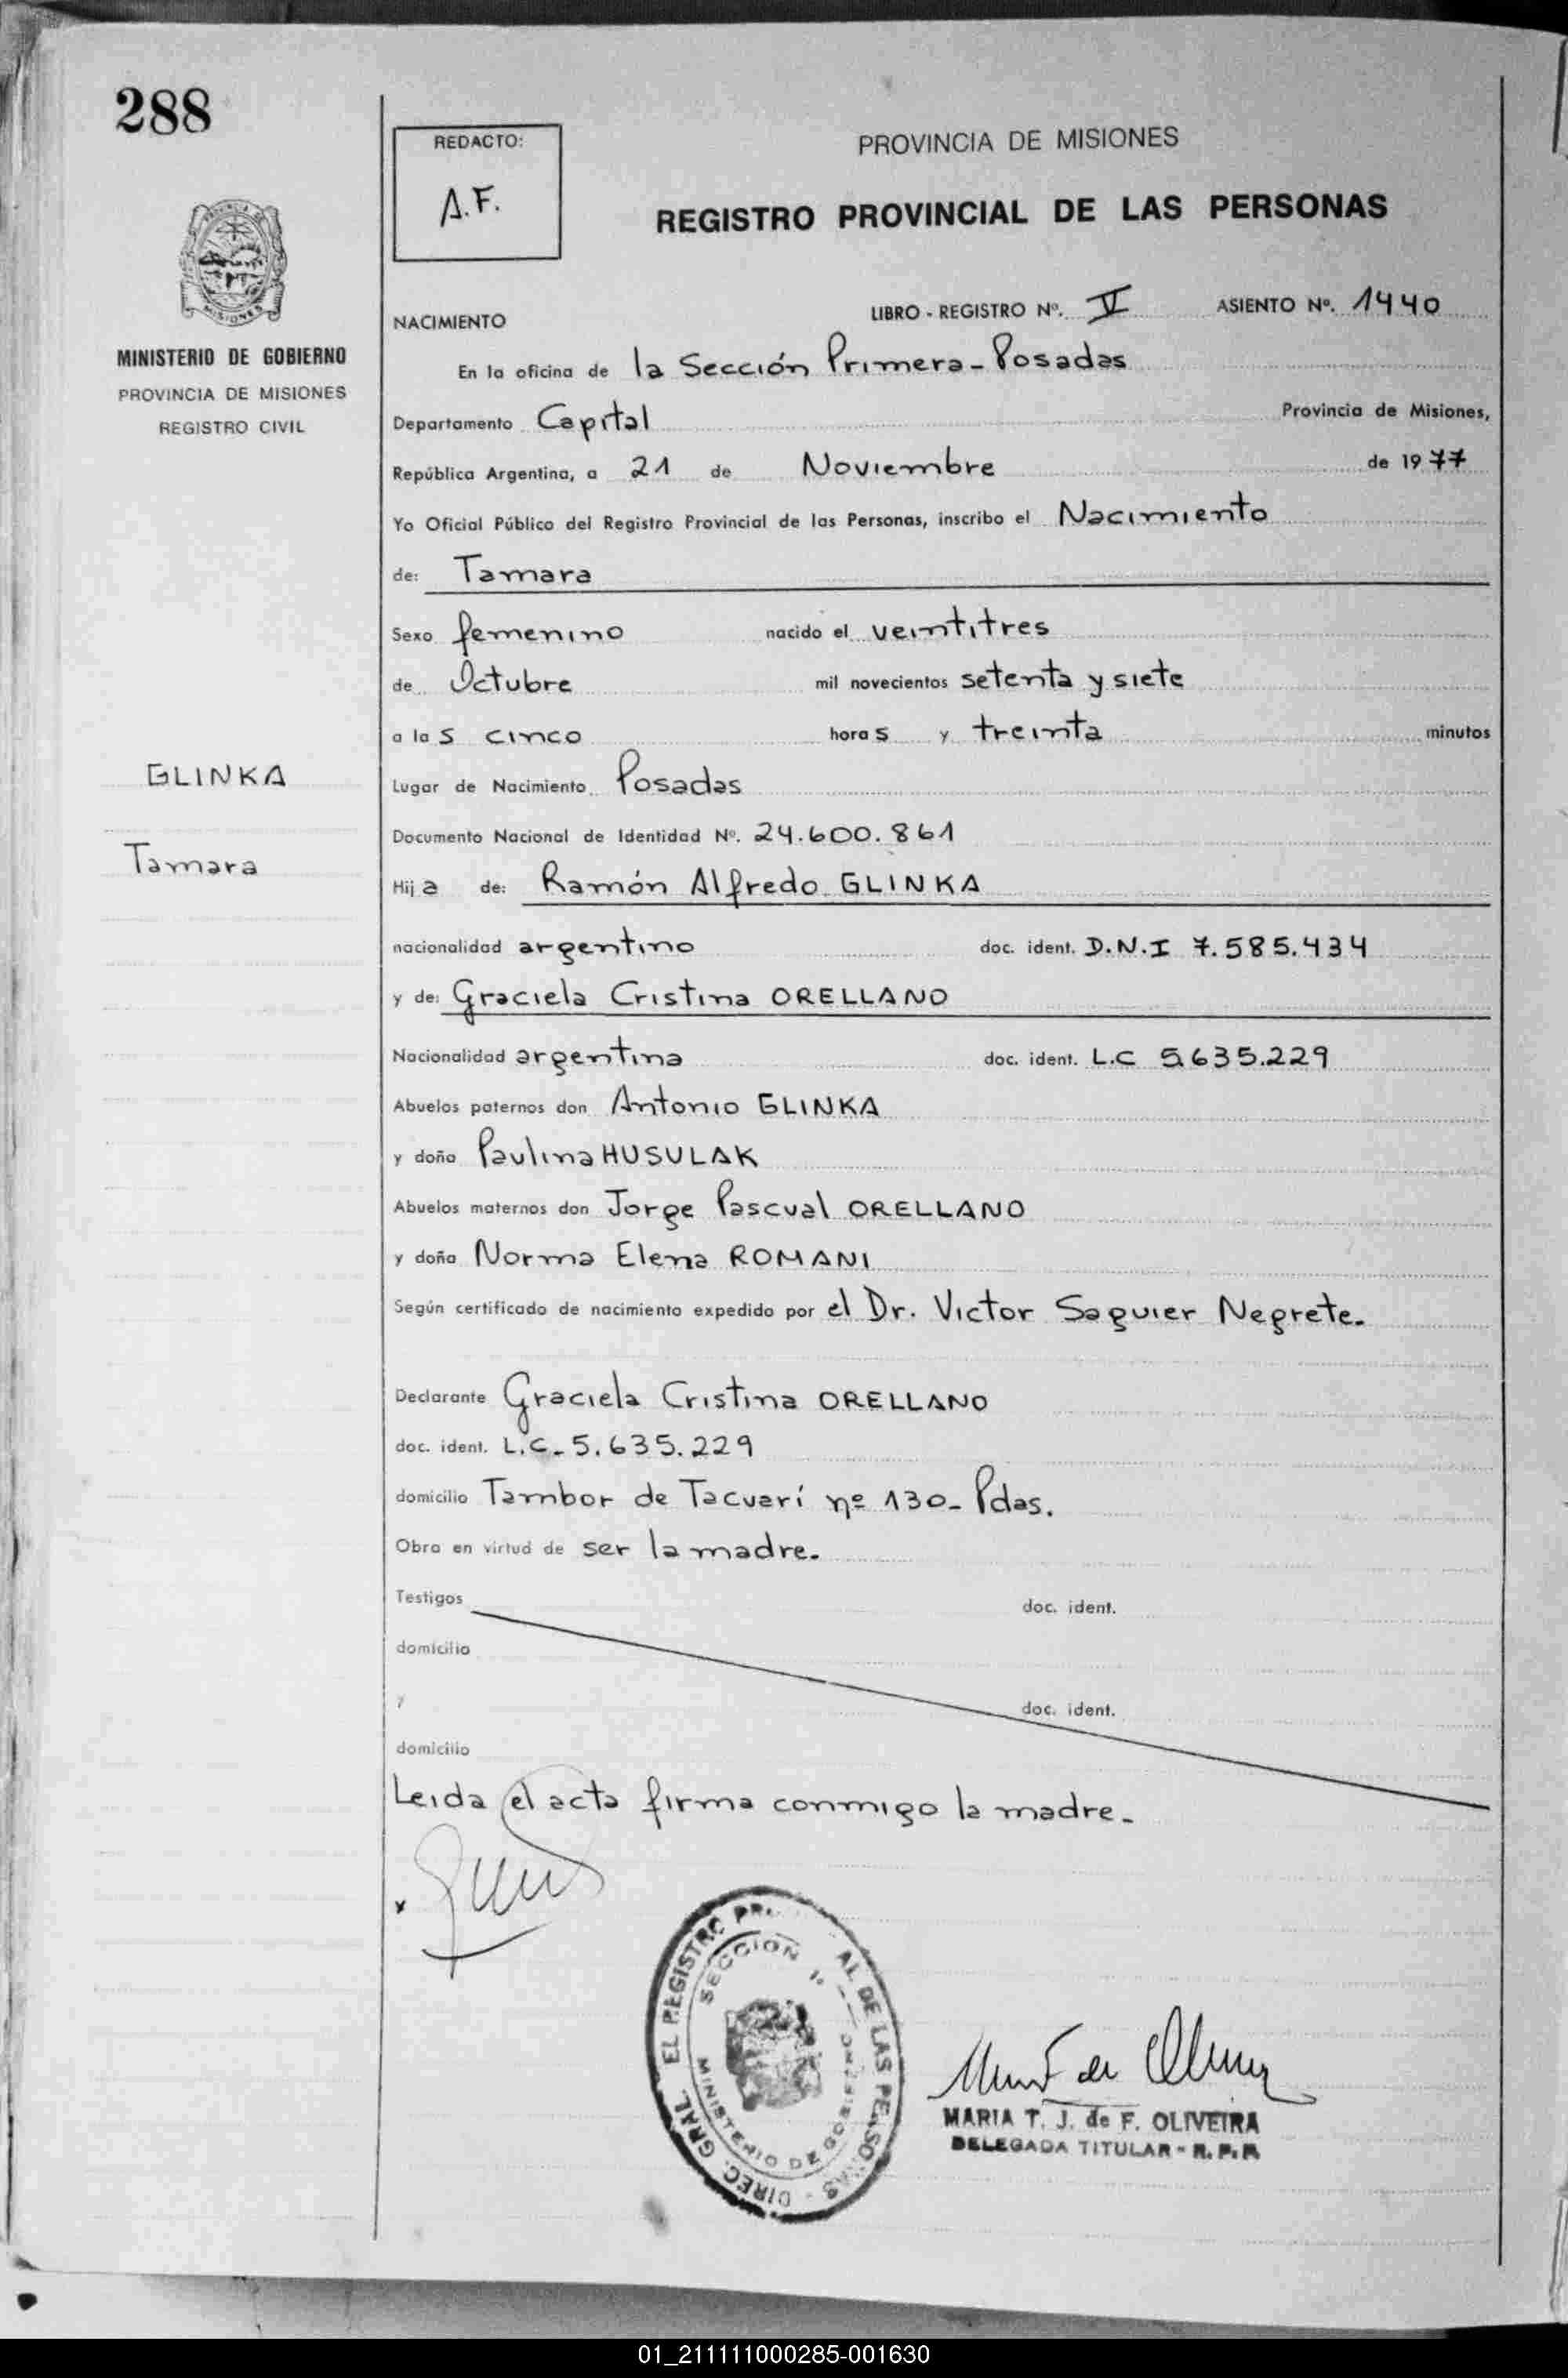 288
REDACTO:
A.F.
PROVINCIA DE MISIONES
REGISTRO PROVINCIAL DE LAS PERSONAS
MISIONES
MINISTERIO DE GOBIERNO
PROVINCIA DE MISIONES
REGISTRO CIVIL
NACIMIENTO
LIBRO - REGISTRO Nº. V ASIENTO Nº. 1440
En la oficina de la Sección Primera - Posadas
Departamento Capital Provincia de Misiones,
República Argentina, a 21 de Noviembre de 1977
Yo Oficial Público del Registro Provincial de las Personas, inscribo el Nacimiento
de: Tamara
Sexo femenino nacido el veintitres
de Octubre mil novecientos setenta y siete
a las cinco horas y treinta minutos
GLINKA
Lugar de Nacimiento Posadas
Documento Nacional de Identidad Nº. 24.600.861
Tamara
Hija de: Ramón Alfredo GLINKA
nacionalidad argentino doc. ident. D.N.I 7.585.434
y de: Graciela Cristina ORELLANO
Nacionalidad argentina doc. ident. L.C 5.635.229
Abuelos paternos don Antonio GLINKA
y doña Paulina HUSULAK
Abuelos maternos don Jorge Pascual ORELLANO
y doña Norma Elena ROMANI
Según certificado de nacimiento expedido por el Dr. Victor Saguier Negrete.
Declarante Graciela Cristina ORELLANO
doc. ident. L.C. 5.635.229
domicilio Tambor de Tacuarí nº 130 - Pdas.
Obra en virtud de ser la madre.
Testigos doc. ident.
domicilio
y doc. ident.
domicilio
Leida el acta firma conmigo la madre.
SECCION 1º
MINISTERIO DE GOBIERNO
MARIA T. J. de F. OLIVEIRA
DELEGADA TITULAR - R. P. P.
01_211111000285-001630